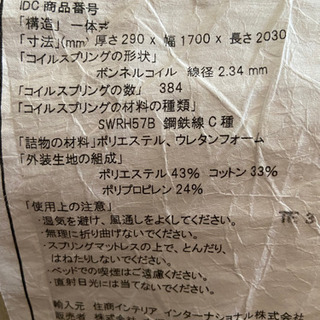 IDC 商品番号
「構造」 一体
「寸法」(mm) 厚さ290 x 幅1700 x 長さ2030
「コイルスプリングの形状」
ボンネルコイル 線径 2.34 mm
「コイルスプリングの数」 384
「コイルスプリングの材料の種類」
SWRH57B 鋼鉄線C種
「詰物の材料」ポリエステル、ウレタンフォーム
「外装生地の組成」
ポリエステル 43% コットン 33%
ポリプロピレン 24%
「使用上の注意」
・湿気を避け、風通しをよくしてください。
・無理に折り曲げないでください。
・スプリングマットレスの上で、とんだり、
はねたりしないでください。
・ベッドでの喫煙はご遠慮ください。
・直射日光に当てないでください。
輸入元 住商インテリア インターナショナル株会社
販売者 株式会社